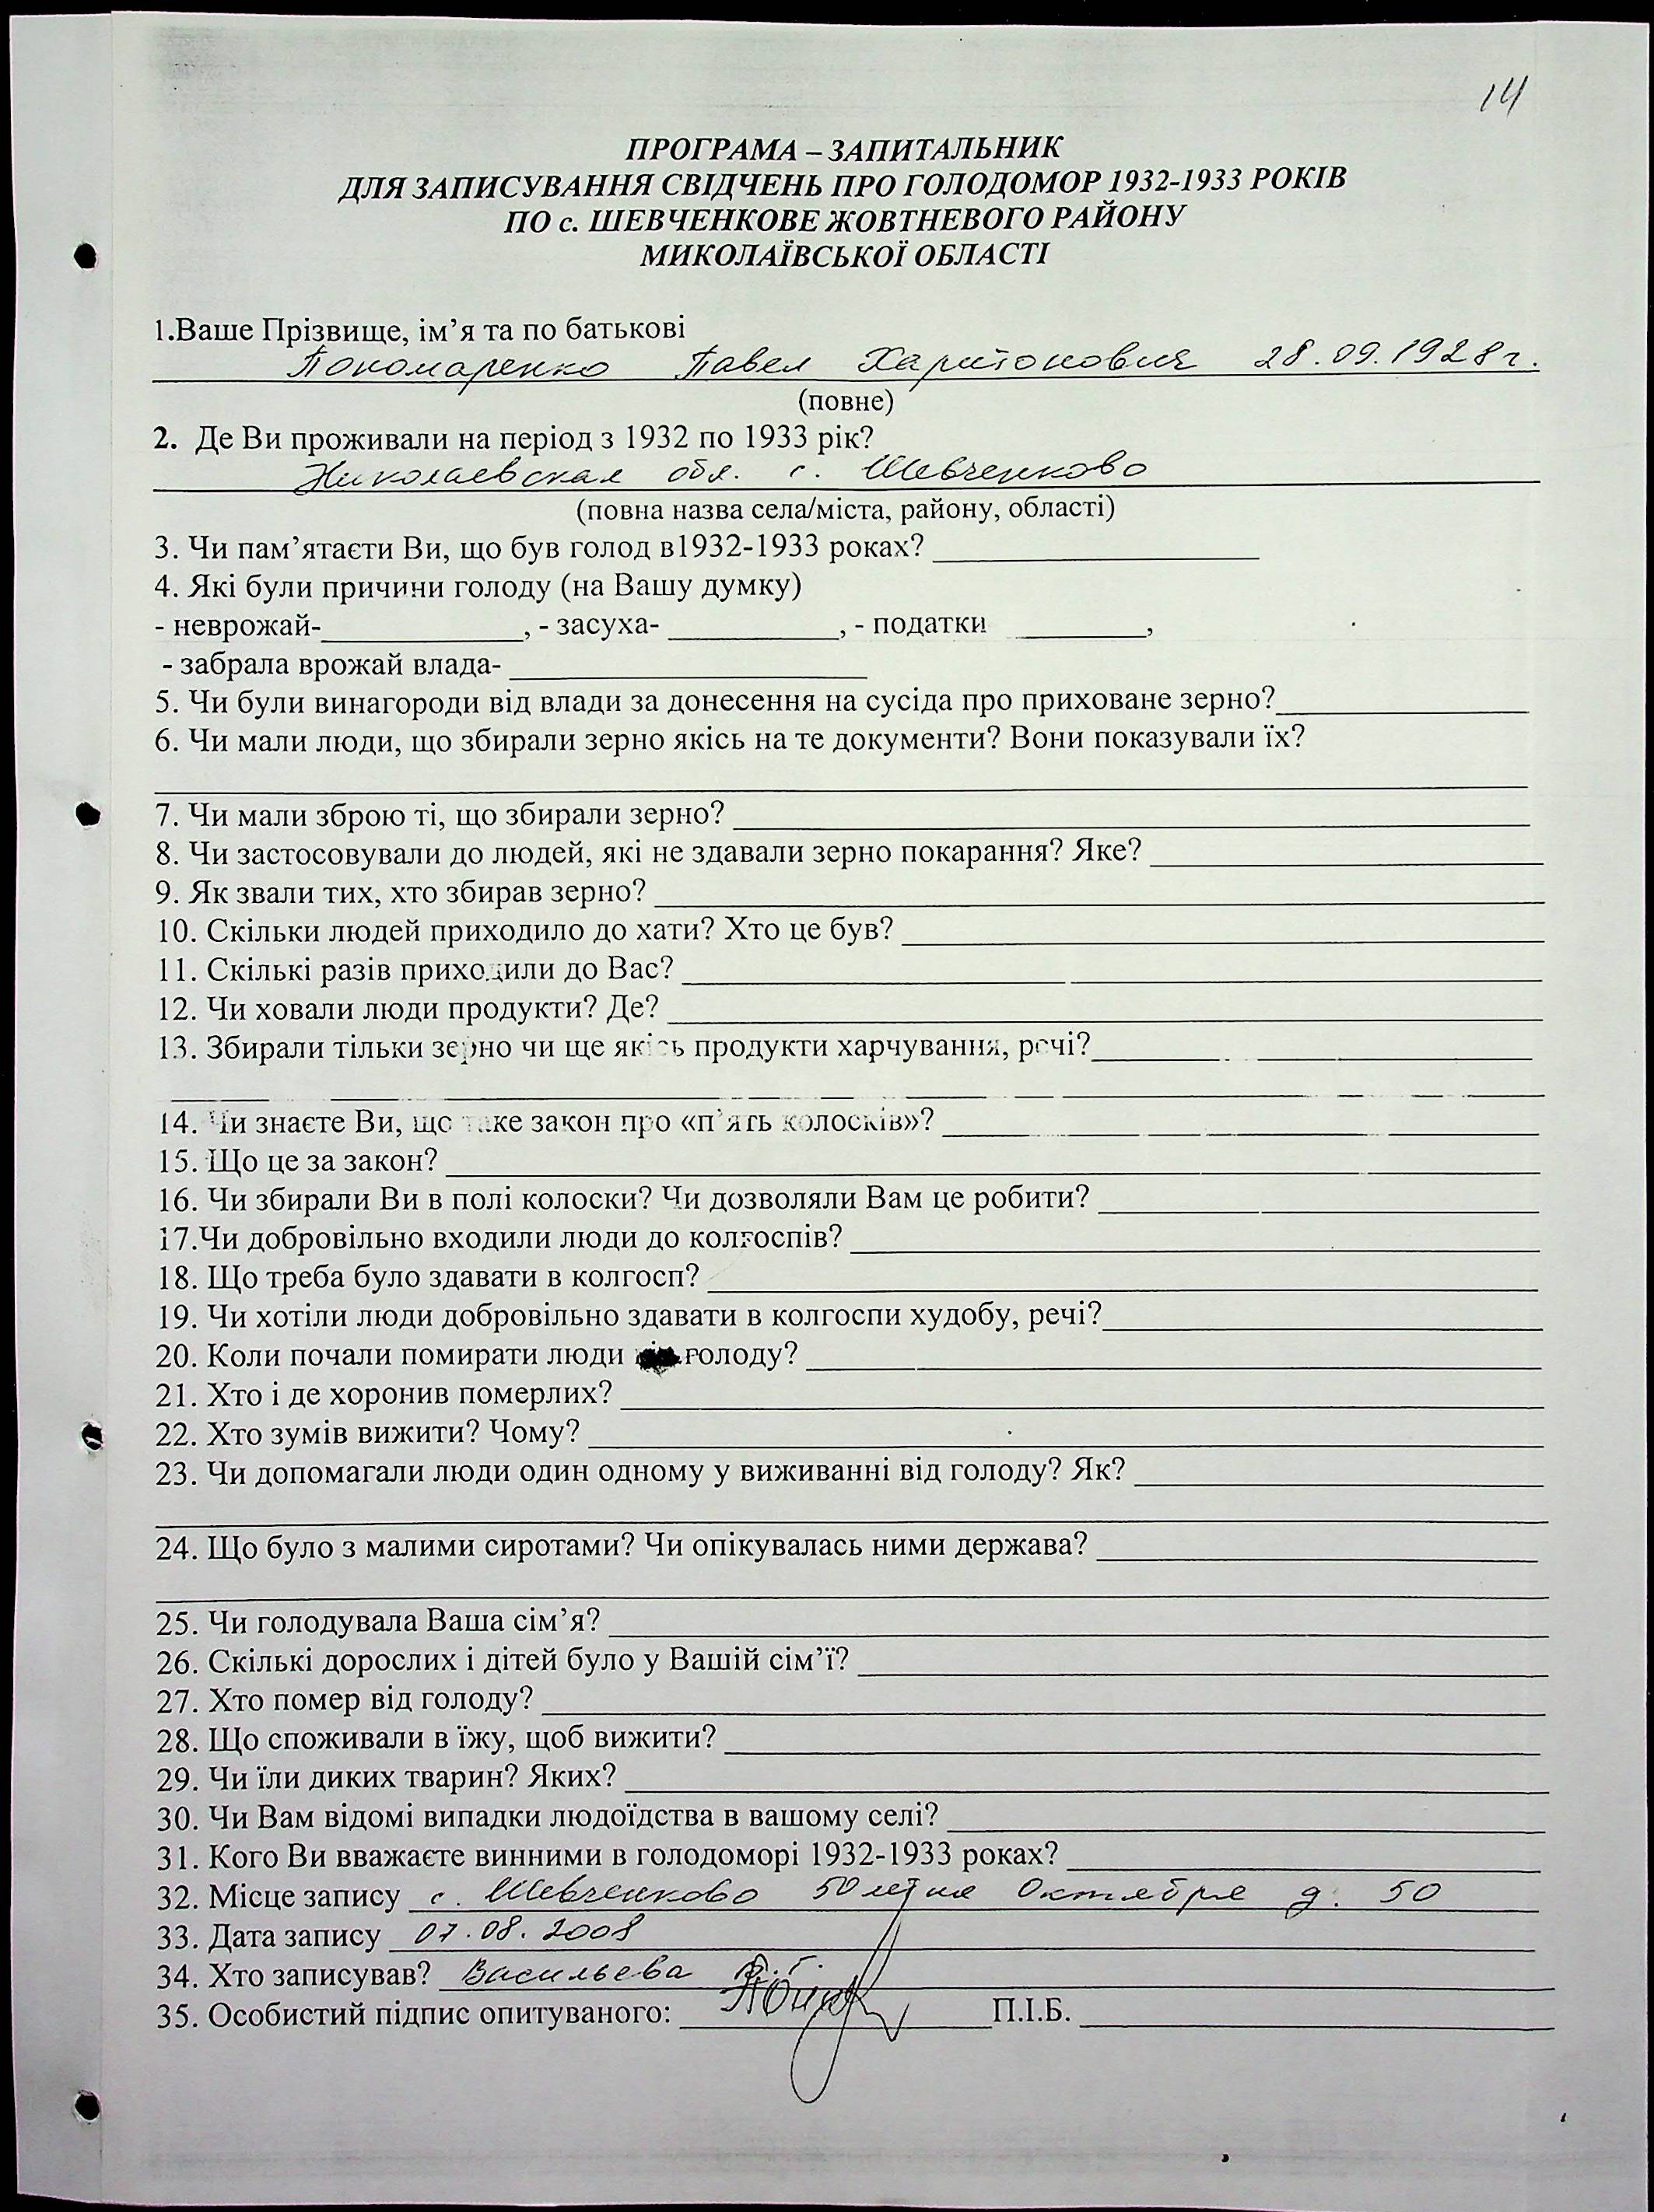 14
ПРОГРАМА – ЗАПИТАЛЬНИК
ДЛЯ ЗАПИСУВАННЯ СВІДЧЕНЬ ПРО ГОЛОДОМОР 1932-1933 РОКІВ
ПО с. ШЕВЧЕНКОВЕ ЖОВТНЕВОГО РАЙОНУ
МИКОЛАЇВСЬКОЇ ОБЛАСТІ
1.Ваше Прізвище, ім’я та по батькові
Пономаренко Павел Харитонович 28.09.1928г.
(повне)
2. Де Ви проживали на період з 1932 по 1933 рік?
Николаевская обл. с. Шевченково
(повна назва села/міста, району, області)
3. Чи пам’ятаєти Ви, що був голод в1932-1933 роках?
4. Які були причини голоду (на Вашу думку)
- неврожай- , - засуха- , - податки ,
- забрала врожай влада-
5. Чи були винагороди від влади за донесення на сусіда про приховане зерно?
6. Чи мали люди, що збирали зерно якісь на те документи? Вони показували їх?
7. Чи мали зброю ті, що збирали зерно?
8. Чи застосовували до людей, які не здавали зерно покарання? Яке?
9. Як звали тих, хто збирав зерно?
10. Скільки людей приходило до хати? Хто це був?
11. Скількі разів приходили до Вас?
12. Чи ховали люди продукти? Де?
13. Збирали тільки зерно чи ще якісь продукти харчування, речі?
14. Чи знаєте Ви, що таке закон про «п’ять колосків»?
15. Що це за закон?
16. Чи збирали Ви в полі колоски? Чи дозволяли Вам це робити?
17.Чи добровільно входили люди до колгоспів?
18. Що треба було здавати в колгосп?
19. Чи хотіли люди добровільно здавати в колгоспи худобу, речі?
20. Коли почали помирати люди голоду?
21. Хто і де хоронив померлих?
22. Хто зумів вижити? Чому?
23. Чи допомагали люди один одному у виживанні від голоду? Як?
24. Що було з малими сиротами? Чи опікувалась ними держава?
25. Чи голодувала Ваша сім’я?
26. Скількі дорослих і дітей було у Вашій сім’ї?
27. Хто помер від голоду?
28. Що споживали в їжу, щоб вижити?
29. Чи їли диких тварин? Яких?
30. Чи Вам відомі випадки людоїдства в вашому селі?
31. Кого Ви вважаєте винними в голодоморі 1932-1933 роках?
32. Місце запису с. Шевченково 50 летия Октября д. 50
33. Дата запису 07.08.2008
34. Хто записував? Васильева В.Г.
35. Особистий підпис опитуваного: П.І.Б.